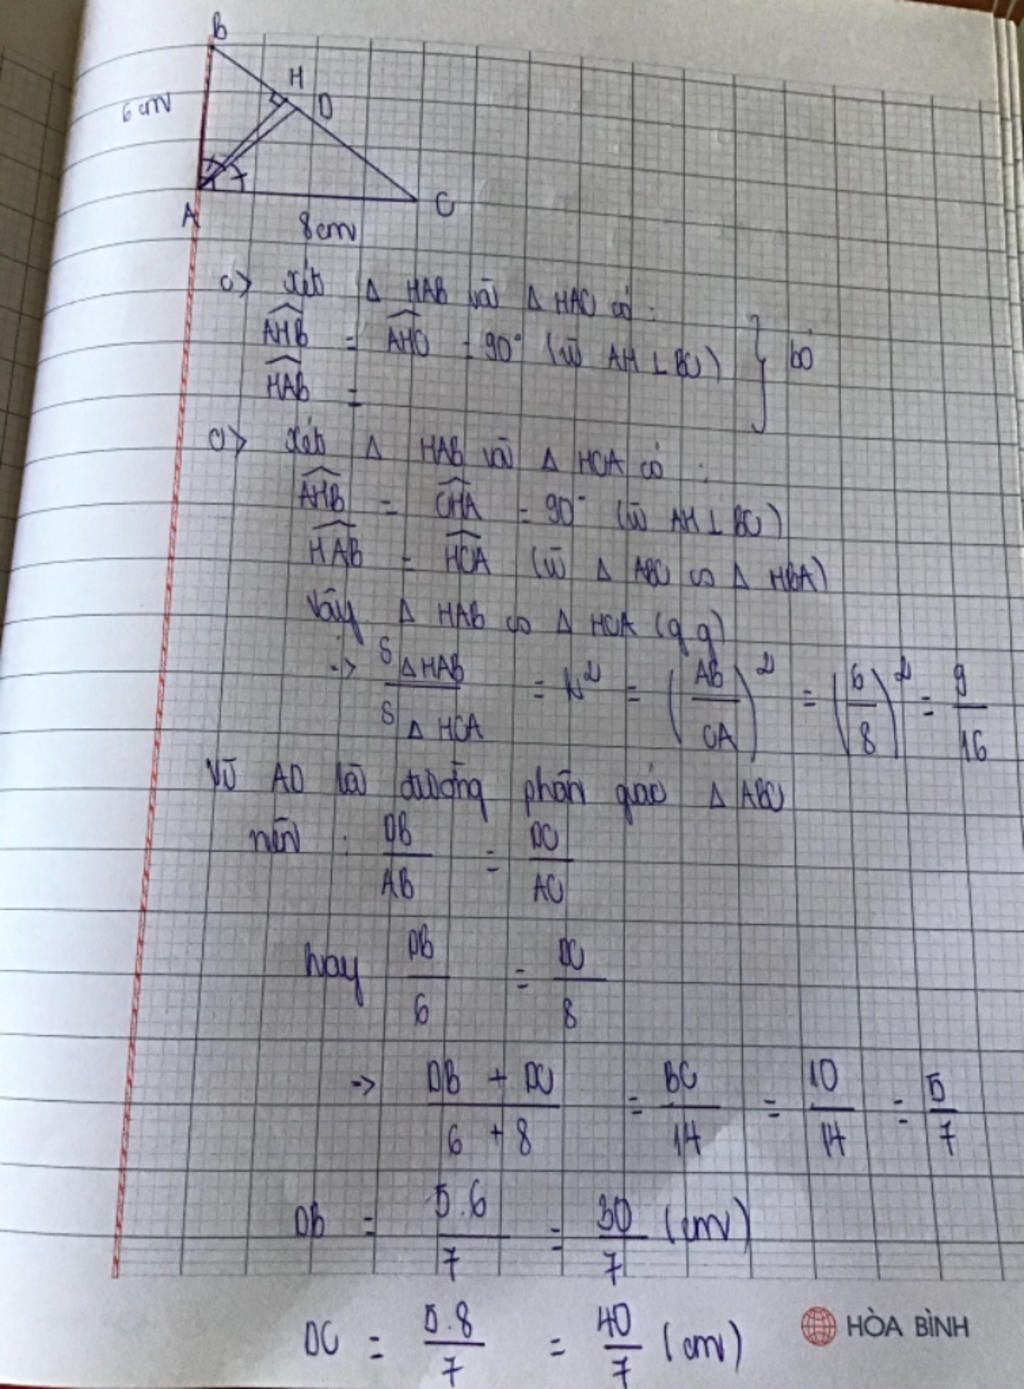 B
H
6cm
D
A
C
8cm
c) Xét Δ HAB và Δ HAC có :
AHB = AHC = 90° (vì AH ⊥ BC) } bỏ
HAB =
c) Xét Δ HAB và Δ HCA có :
AHB = CHA = 90° (vì AH ⊥ BC)
HAB = HCA (vì Δ ABC ∽ Δ HBA)
Vậy Δ HAB ∽ Δ HCA (g g)
-> S Δ HAB / S Δ HCA = k² = (AB/CA)² = (6/8)² = 9/16
Vì AD là đường phân giác Δ ABC
nên : DB/AB = DC/AC
hay DB/6 = DC/8
-> DB + DC / 6 + 8 = BC/14 = 10/14 = 5/7
DB = 5.6/7 = 30/7 (cm)
DC = 5.8/7 = 40/7 (cm)
HÒA BÌNH